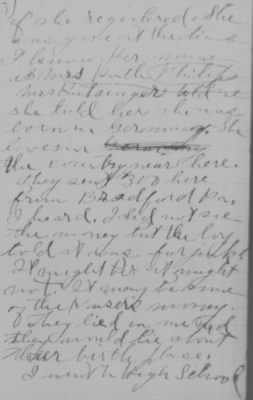 if she registered. She
was gone at the time
I know. Her name
is Mrs Ruth Philips
Mrs told me
she told her she was
born in Germany. She
lives in
the country near here.
They sent 300 here
from Bradford Pa.
I heard. I did not see
the money but the boy
told it was for
It might be it might
not. It may be some
of the money.
If they lied on me and
they would lie about
their birth place.
I went to High School